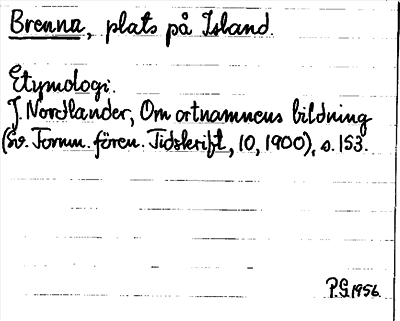 Brenna, plats på Island.
Etymologi:
J. Nordlander, Om ortnamnens bildning
(Sv. Fornm. fören. Tidskrift, 10, 1900), s. 153.
P.G. 1956.